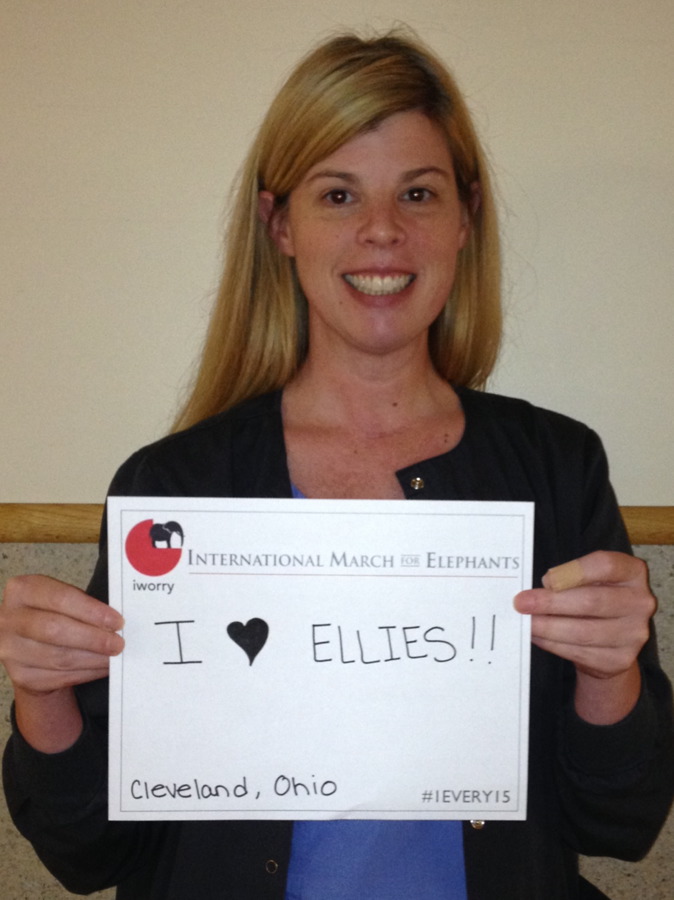 INTERNATIONAL MARCH FOR ELEPHANTS
iworry
I ♥ ELLIES!!
Cleveland, Ohio
#1EVERY15